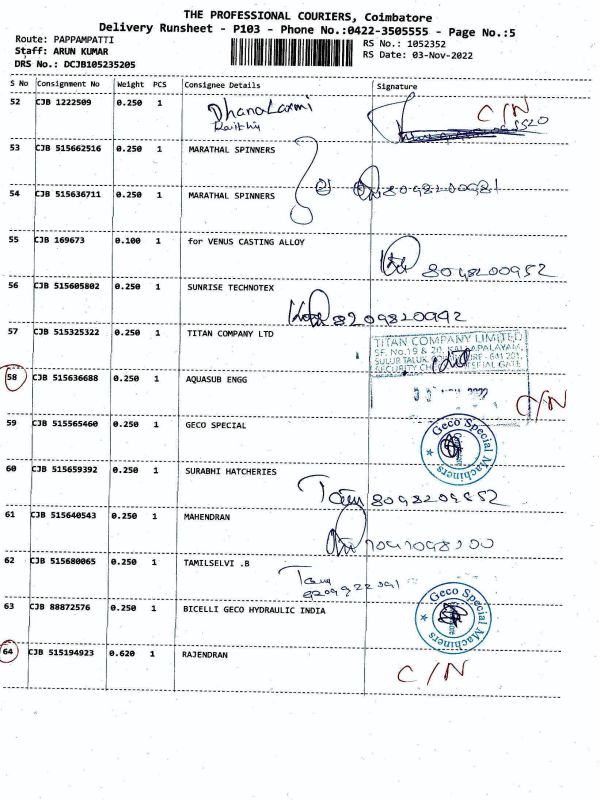 THE PROFESSIONAL COURIERS, Coimbatore
Delivery Runsheet - P103 - Phone No.:0422-3505555 - Page No.:5
Route: PAPPAMPATTI
Staff: ARUN KUMAR
DRS No.: DCJB105235205
RS No.: 1052352
RS Date: 03-Nov-2022
S No Consignment No Weight PCS Consignee Details Signature
52 CJB 1222509 0.250 1 DhanaLaxmi C/N
53 CJB 515662516 0.250 1 MARATHAL SPINNERS
54 CJB 515636711 0.250 1 MARATHAL SPINNERS 8098200981
55 CJB 169673 0.100 1 for VENUS CASTING ALLOY 8048200952
56 CJB 515605802 0.250 1 SUNRISE TECHNOTEX 8209820992
57 CJB 515325322 0.250 1 TITAN COMPANY LTD
TITAN COMPANY LIMITED
SF. No.19 & 20,
SULUR TALUK
58 CJB 515636688 0.250 1 AQUASUB ENGG C/N
59 CJB 515565460 0.250 1 GECO SPECIAL
Geco Special Machiners
60 CJB 515659392 0.250 1 SURABHI HATCHERIES
61 CJB 515640543 0.250 1 MAHENDRAN
62 CJB 515680065 0.250 1 TAMILSELVI .B
63 CJB 88872576 0.250 1 BICELLI GECO HYDRAULIC INDIA
Geco Special Machiners
64 CJB 515194923 0.620 1 RAJENDRAN C/N